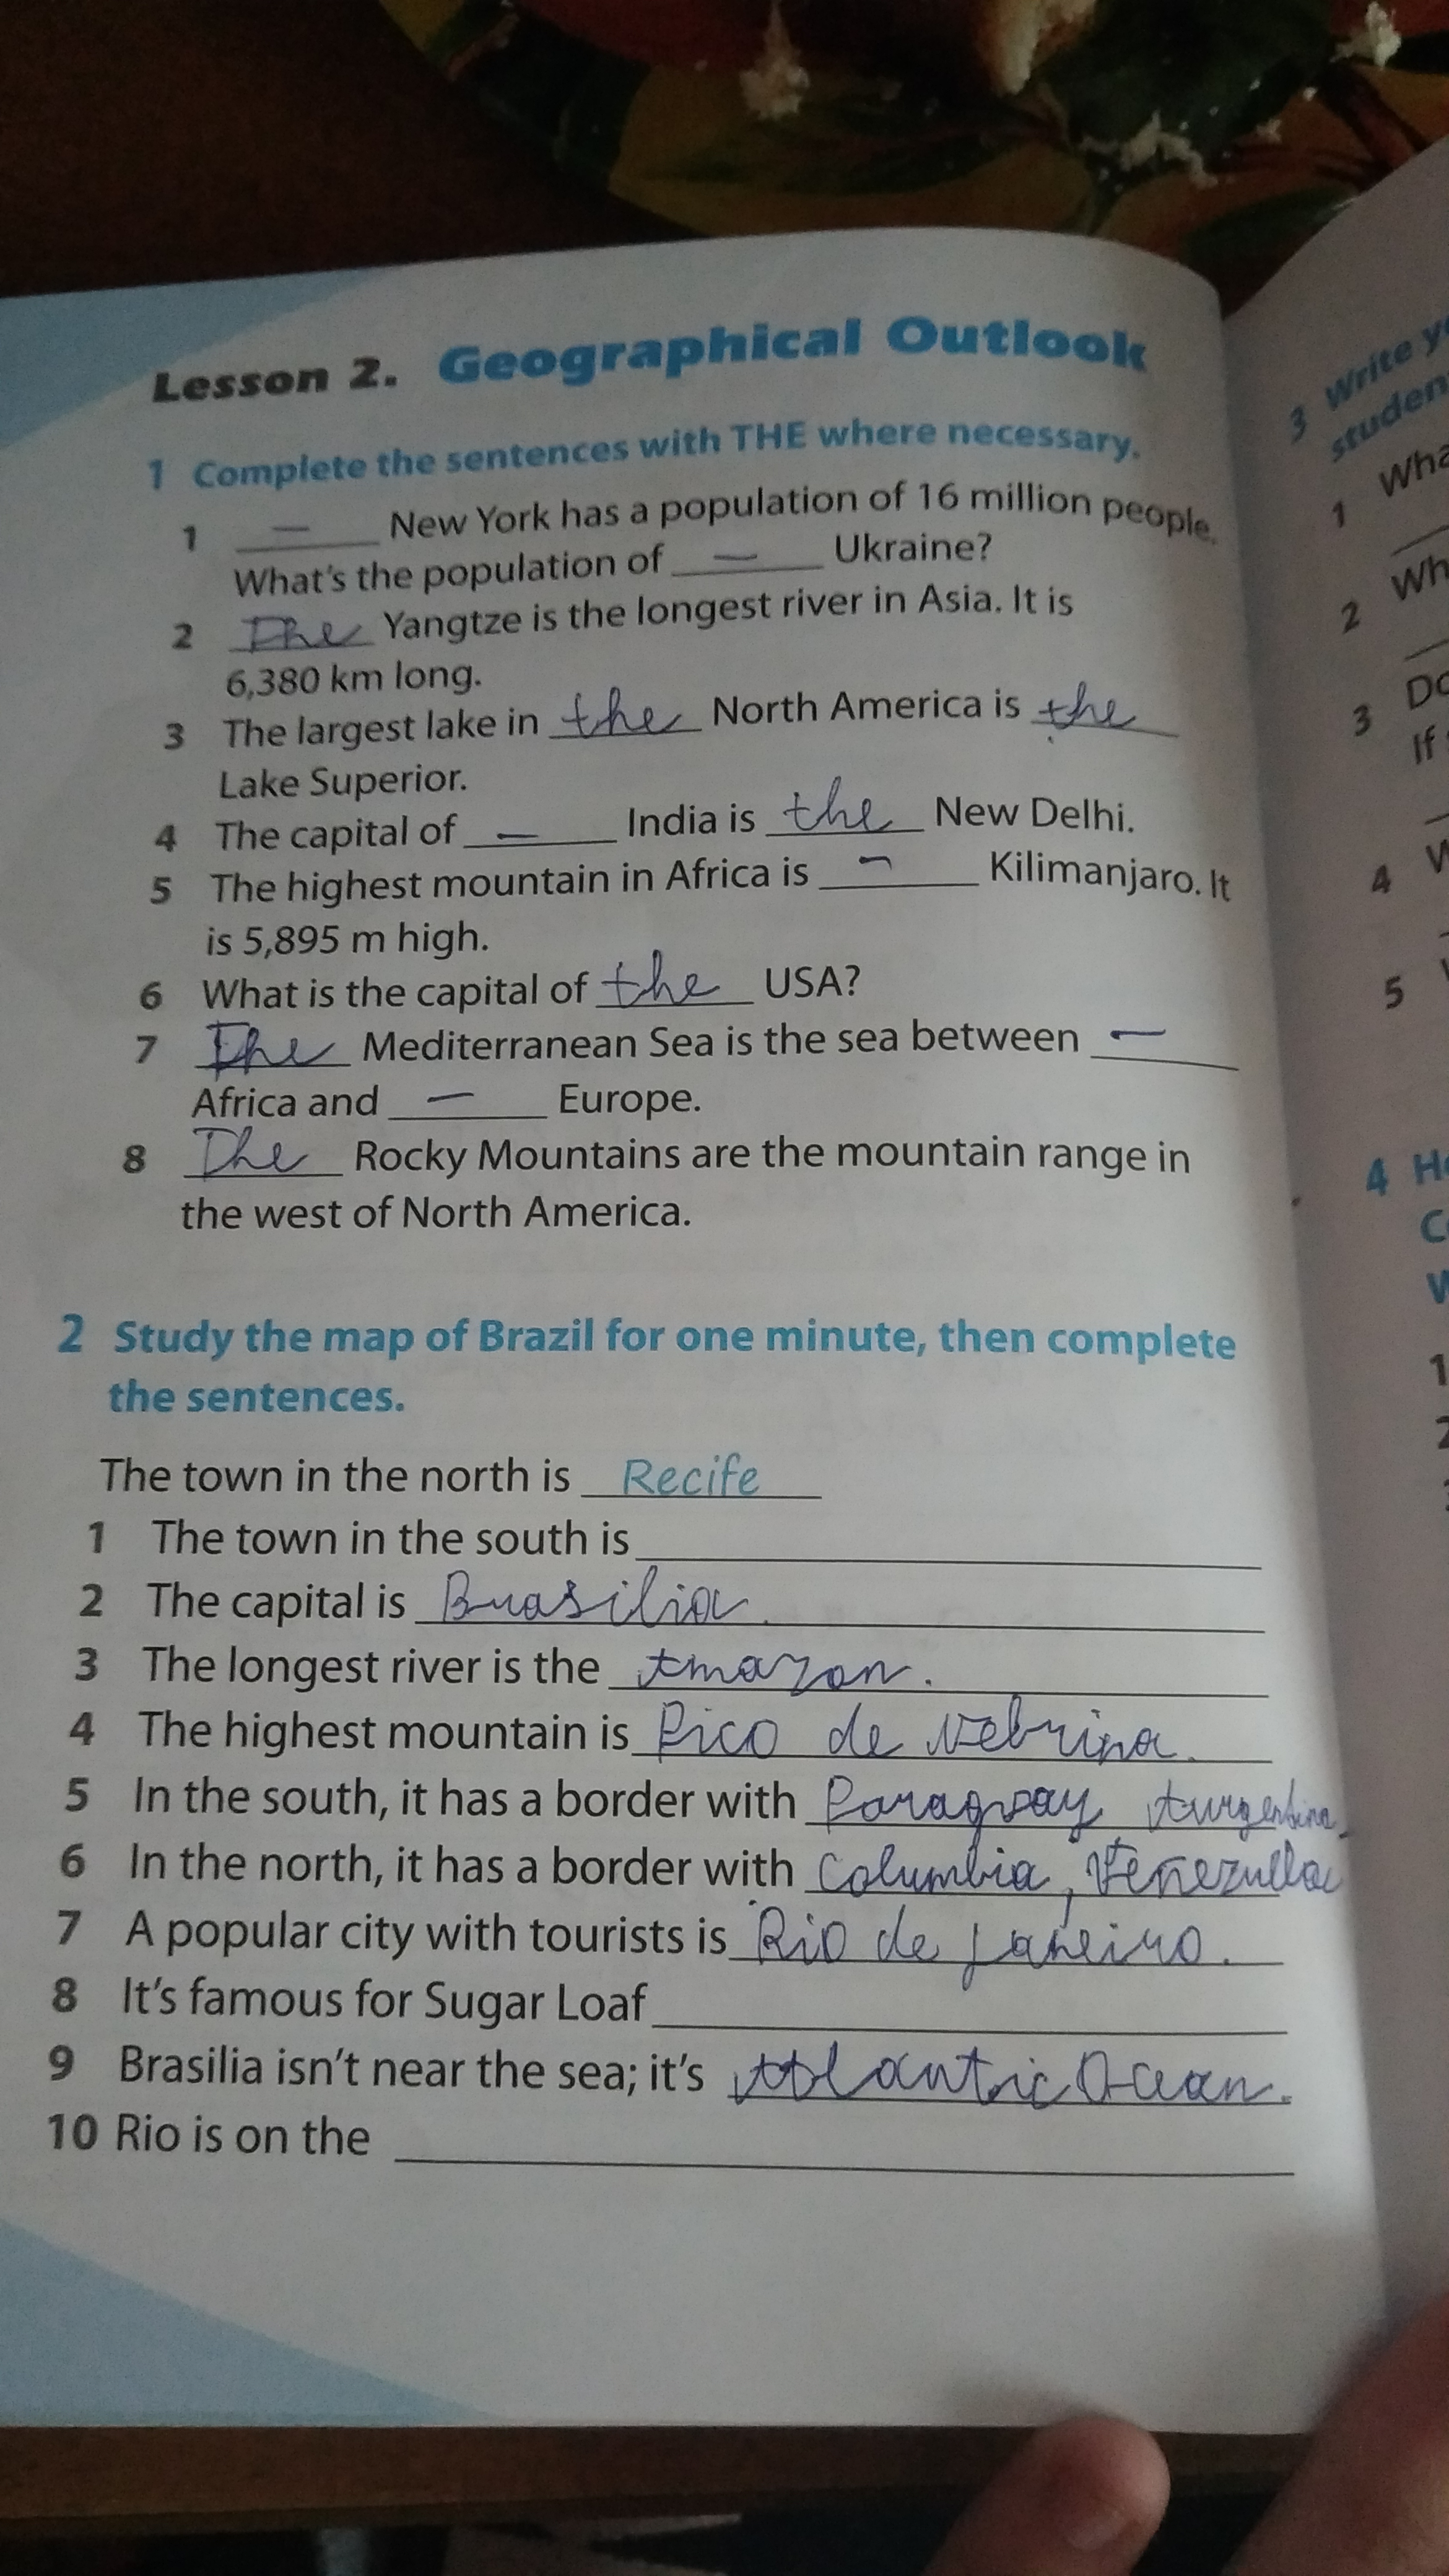 Lesson 2. Geographical Outlook
1 Complete the sentences with THE where necessary.
1 — New York has a population of 16 million people.
What's the population of — Ukraine?
2 The Yangtze is the longest river in Asia. It is
6,380 km long.
3 The largest lake in the North America is the
Lake Superior.
4 The capital of — India is the New Delhi.
5 The highest mountain in Africa is — Kilimanjaro. It
is 5,895 m high.
6 What is the capital of the USA?
7 The Mediterranean Sea is the sea between —
Africa and — Europe.
8 The Rocky Mountains are the mountain range in
the west of North America.
2 Study the map of Brazil for one minute, then complete
the sentences.
The town in the north is Recife
1 The town in the south is
2 The capital is Brasilia.
3 The longest river is the Amazon.
4 The highest mountain is Pico de Nebrina.
5 In the south, it has a border with Paragway Argentina
6 In the north, it has a border with Columbia, Venezulla
7 A popular city with tourists is Rio de Janeiro.
8 It's famous for Sugar Loaf
9 Brasilia isn't near the sea; it's Atlantic Ocean.
10 Rio is on the
3 Write
studen
1 Wha
2 Wh
3 Do
If
4
5
4 H
C
W
1